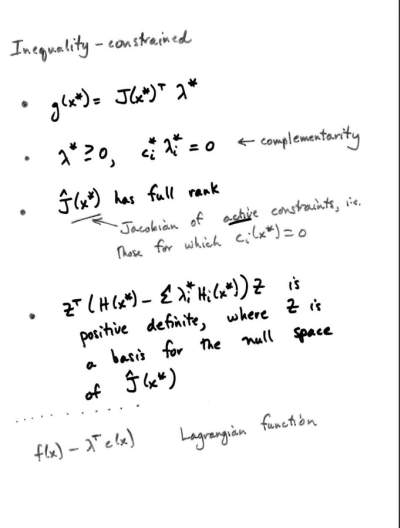 Inequality - constrained
• g(x*) = J(x*)ᵀ λ*
• λ* ≥ 0, cᵢ* λᵢ* = 0 ← complementarity
• Ĵ(x*) has full rank
← Jacobian of active constraints, i.e.
those for which cᵢ(x*) = 0
• Zᵀ (H(x*) - Σ λᵢ* Hᵢ(x*)) Z is
positive definite, where Z is
a basis for the null space
of Ĵ(x*)
f(x) - λᵀ c(x) Lagrangian function